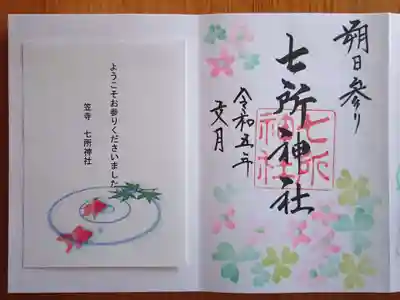 朔日参り
七所神社
七所
神社
令和五年
文月
ようこそお参りくださいました
笠寺 七所神社